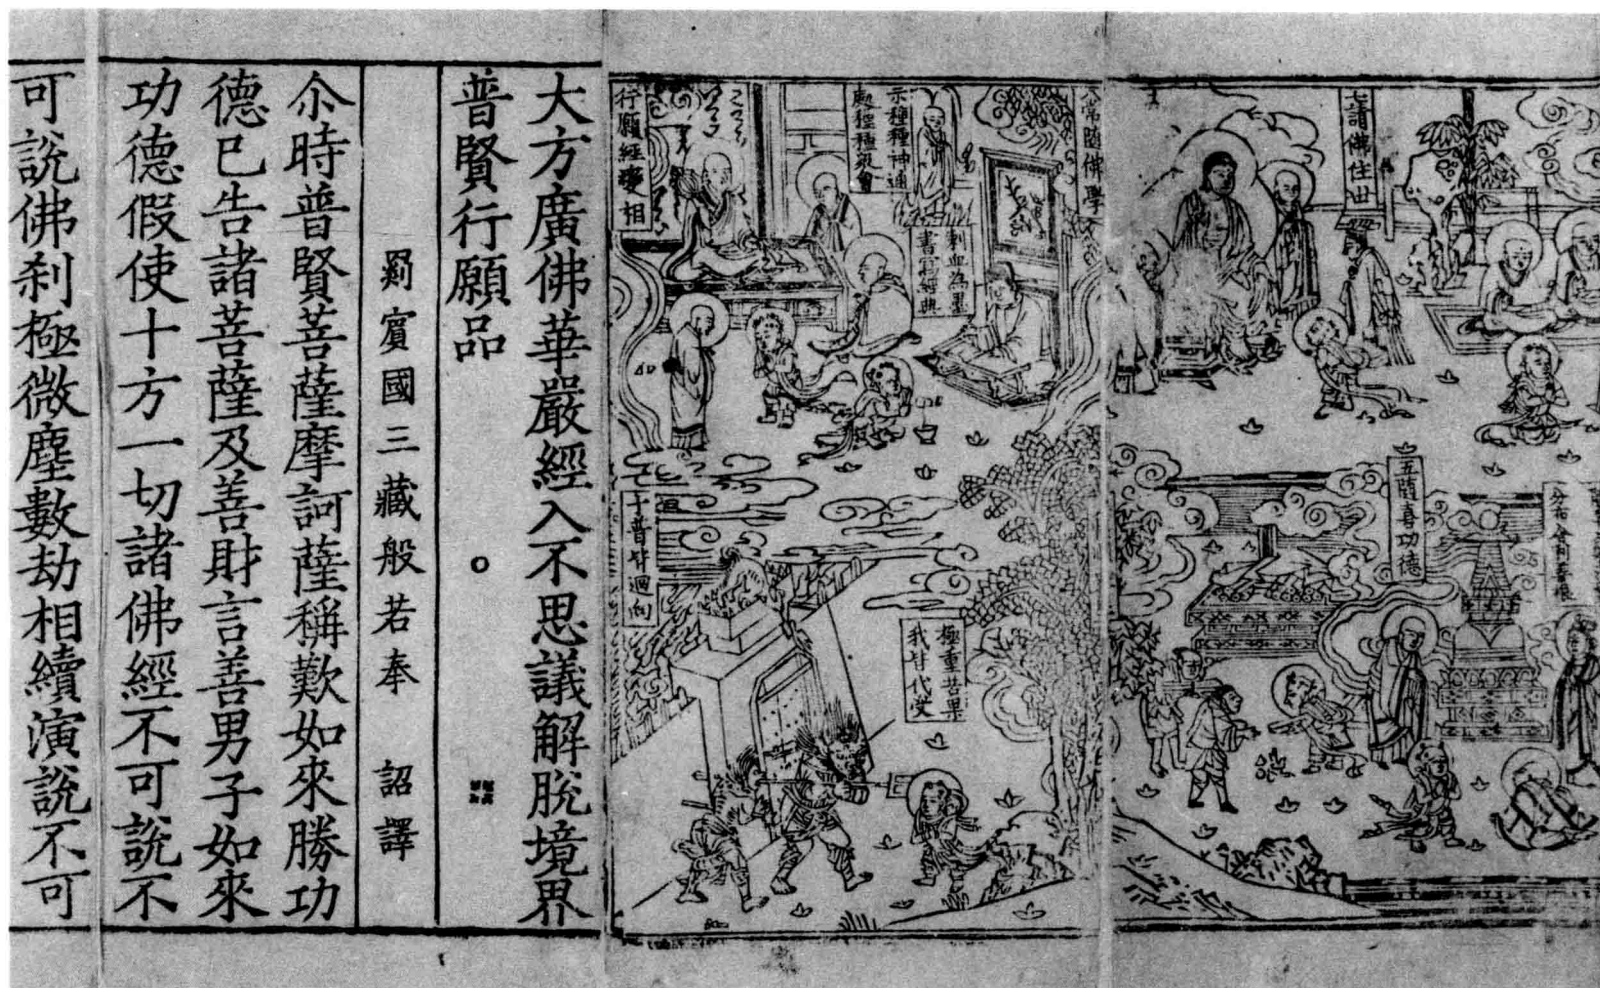 七請佛住世
五隨喜功德
八常隨佛學
示種種神通
處種種衆會
刺血為墨
書寫經典
行願經變相
十普皆迴向
極重苦果
我皆代受
大方廣佛華嚴經入不思議解脫境界
普賢行願品
罽賓國三藏般若奉 詔譯
尒時普賢菩薩摩訶薩稱歎如來勝功
德已告諸菩薩及善財言善男子如來
功德假使十方一切諸佛經不可說不
可說佛刹極微塵數劫相續演說不可